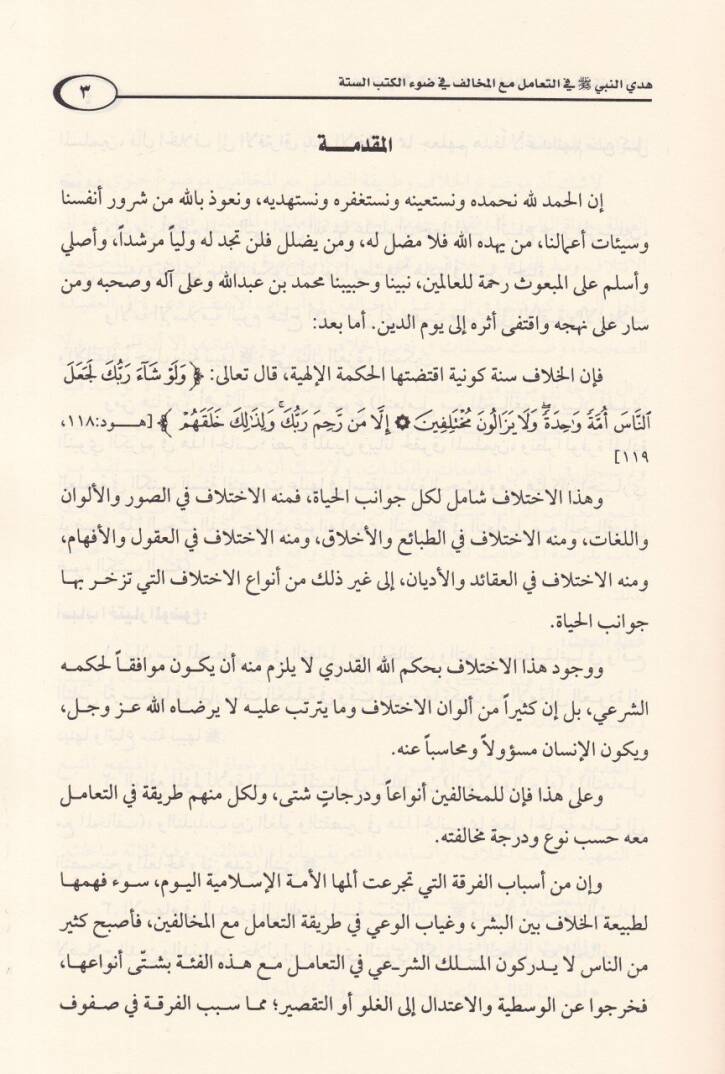 هدي النبي ﷺ في التعامل مع المخالف في ضوء الكتب الستة
٣
المقدمــــة
إن الحمد لله نحمده ونستعينه ونستغفره ونستهديه، ونعوذ بالله من شرور أنفسنا
وسيئات أعمالنا، من يهده الله فلا مضل له، ومن يضلل فلن تجد له ولياً مرشداً، وأصلي
وأسلم على المبعوث رحمة للعالمين، نبينا وحبيبنا محمد بن عبدالله وعلى آله وصحبه ومن
سار على نهجه واقتفى أثره إلى يوم الدين. أما بعد:
فإن الخلاف سنة كونية اقتضتها الحكمة الإلهية، قال تعالى: ﴿ وَلَوْ شَآءَ رَبُّكَ لَجَعَلَ
ٱلنَّاسَ أُمَّةً وَٰحِدَةً ۖ وَلَا يَزَالُونَ مُخْتَلِفِينَ ۞ إِلَّا مَن رَّحِمَ رَبُّكَ ۚ وَلِذَٰلِكَ خَلَقَهُمْ ﴾ [هـــود:١١٨،
١١٩]
وهذا الاختلاف شامل لكل جوانب الحياة، فمنه الاختلاف في الصور والألوان
واللغات، ومنه الاختلاف في الطبائع والأخلاق، ومنه الاختلاف في العقول والأفهام،
ومنه الاختلاف في العقائد والأديان، إلى غير ذلك من أنواع الاختلاف التي تزخر بها
جوانب الحياة.
ووجود هذا الاختلاف بحكم الله القدري لا يلزم منه أن يكون موافقـاً لحكمـه
الشرعي، بل إن كثيراً من ألوان الاختلاف وما يترتب عليـه لا يرضـاه الله عـز وجـل،
ويكون الإنسان مسؤولاً ومحاسباً عنه.
وعلى هذا فإن للمخالفين أنواعاً ودرجاتٍ شتى، ولكل منهم طريقة في التعامل
معه حسب نوع ودرجة مخالفته.
وإن من أسباب الفرقة التي تجرعت ألمها الأمة الإسلامية اليوم، سـوء فهمهـا
لطبيعة الخلاف بين البشر، وغياب الوعي في طريقة التعامل مع المخالفين، فأصبح كثير
من الناس لا يـدركون المسلك الشرعي في التعامل مـع هـذه الفئـة بشتّـى أنواعهـا،
فخرجوا عن الوسطية والاعتدال إلى الغلو أو التقصير؛ ممـا سـبب الفرقـة في صـفوف